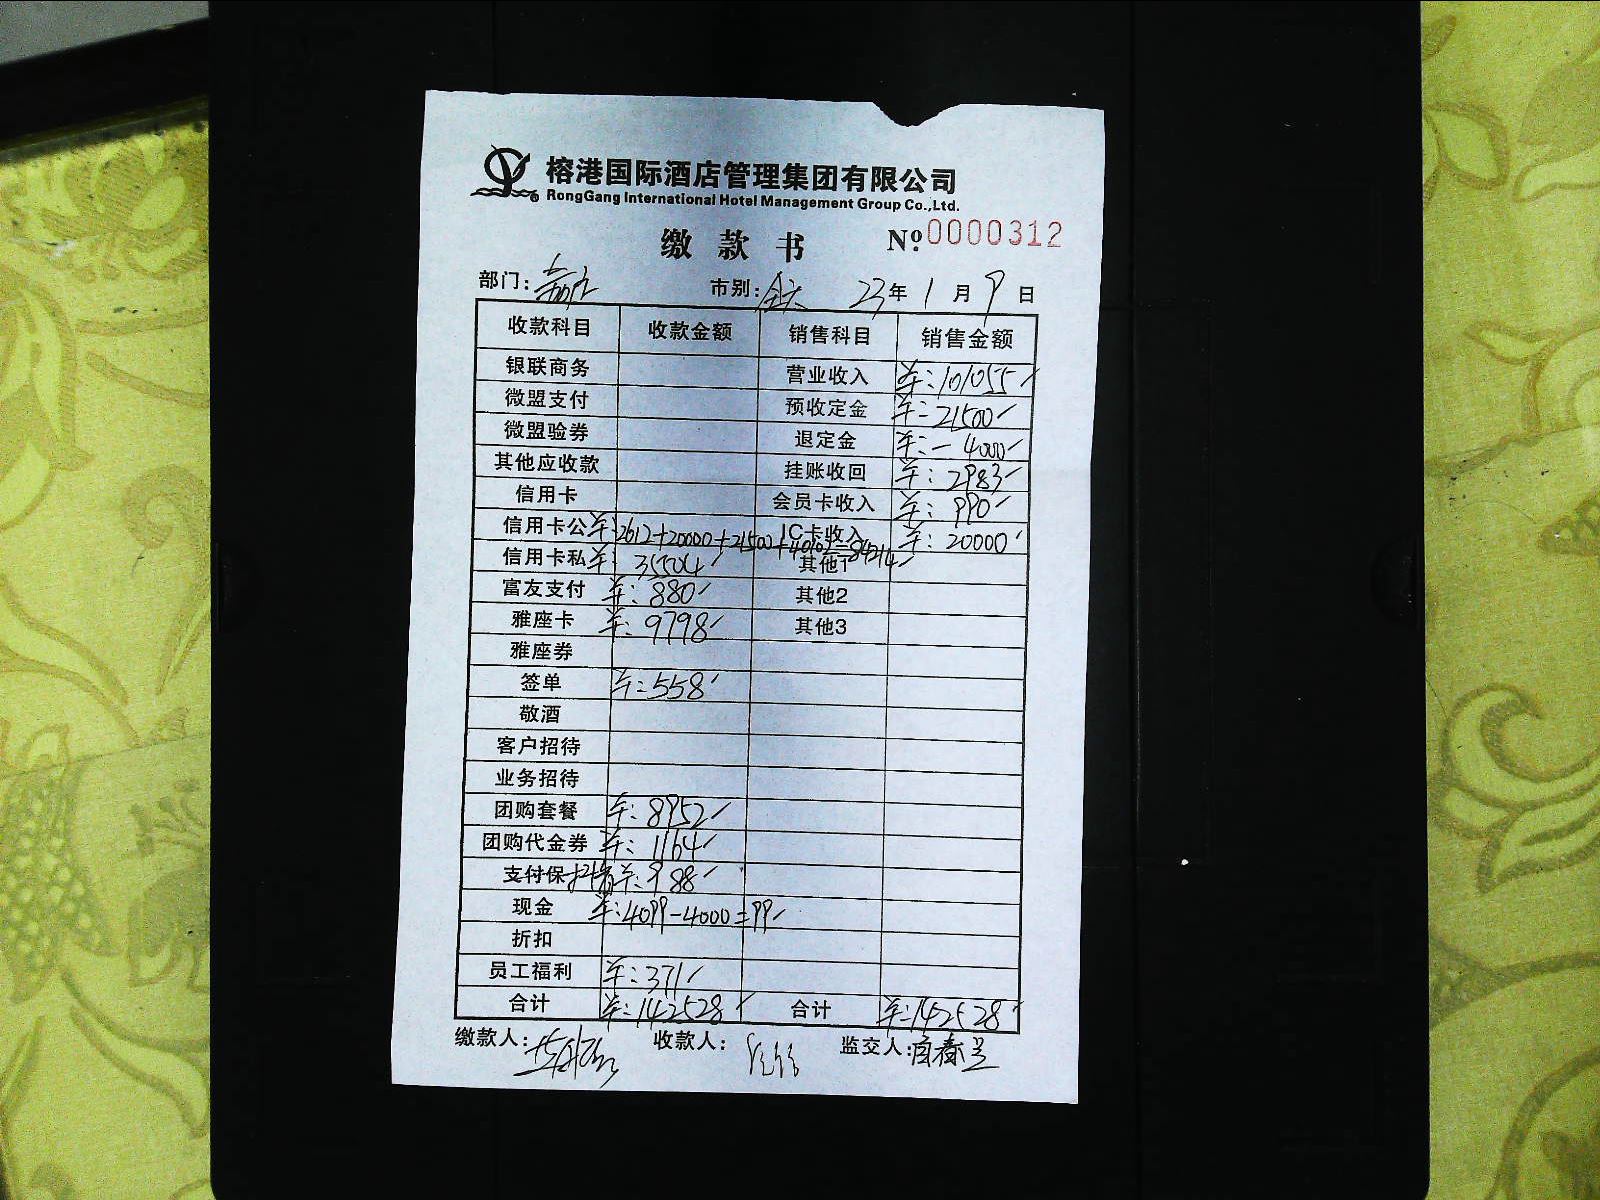 榕港国际酒店管理集团有限公司
RongGang International Hotel Management Group Co.,Ltd.
缴款书 Nº 0000312
部门: 市别: 全天 23年 1月 9日
收款科目 收款金额 销售科目 销售金额
银联商务 营业收入 ¥:101055
微盟支付 预收定金 ¥:21500
微盟验券 退定金 ¥:-4000
其他应收款 挂账收回 ¥:2983
信用卡 会员卡收入 ¥:990
信用卡公 ¥:2612+20000+21500+40102=84214 IC卡收入 ¥:20000
信用卡私 ¥:35504 其他1
富友支付 ¥:880 其他2
雅座卡 ¥:9798 其他3
雅座券
签单 ¥:558
敬酒
客户招待
业务招待
团购套餐 ¥:8952
团购代金券 ¥:1164
支付保 抖音 ¥:988
现金 ¥:4099-4000=99
折扣
员工福利 ¥:371
合计 ¥:142528 合计 ¥:142528
缴款人: 收款人: 监交人: